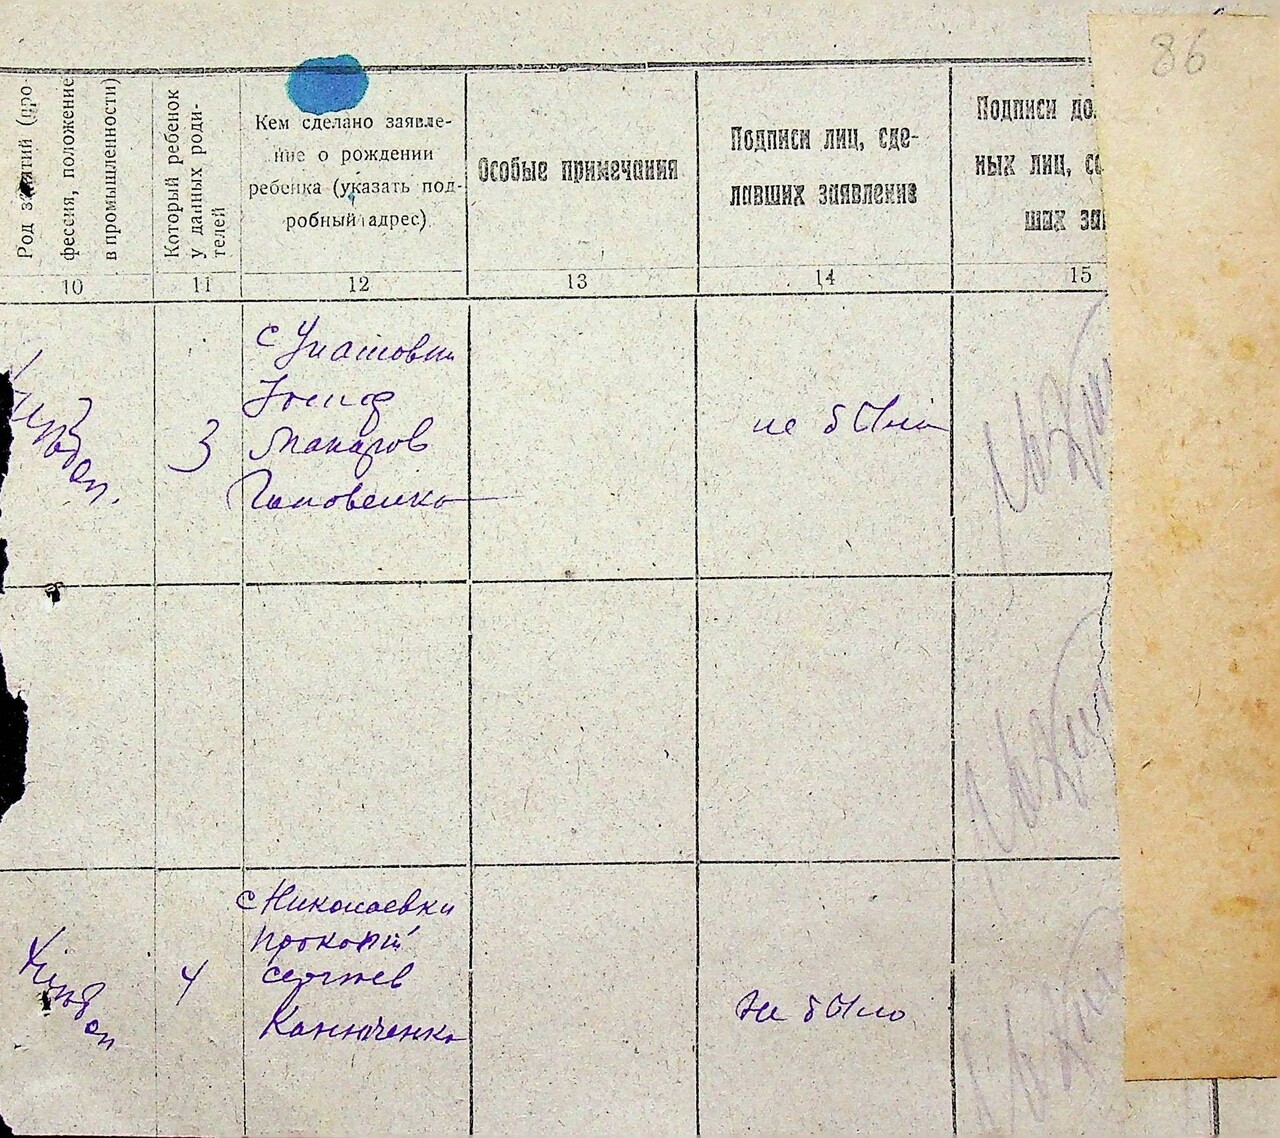 86
Род занятий (про
фессия, положение
в промышленности)
Который ребенок
у данных роди-
телей
Кем сделано заявле-
ние о рождении
ребенка (указать под-
робный адрес)
Особые примечания
Подписи лиц, сде-
лавших заявление
Подписи дол
ных лиц, со
ших зая
10 11 12 13 14 15
с
Иосиф
3
Макаров
не было
с Николаевки
Прокопий
Сергеев
4
не было